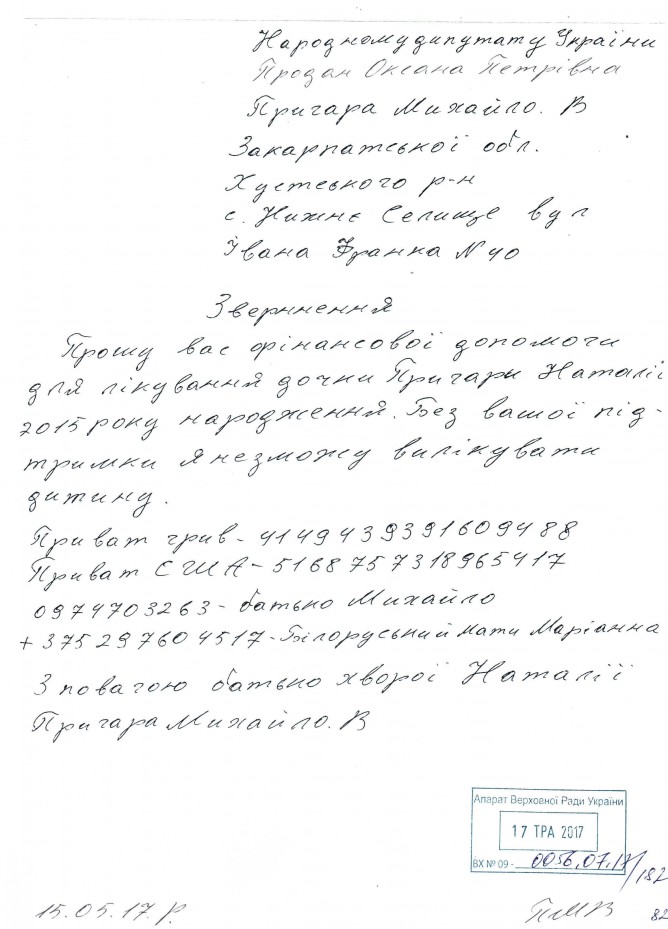 Народному депутату України
Продан Оксана Петрівна
Пригара Михайло. В
Закарпатської обл.
Хустського р-н
с. Нижнє Селище вул
Івана Франка N 40
Звернення
Прошу вас фінансової допомоги
для лікування дочки Пригари Наталії
2015 року народження. Без вашої під-
тримки я незможу вилікувати
дитину.
Приват грив - 4149439391609488
Приват США - 5168757318965417
0974703263 - батько Михайло
+375297604517 - Білоруський мати Маріанна
З повагою батько хворої Наталіїї
Пригара Михайло. В
Апарат Верховної Ради України
17 ТРА 2017
ВХ № 09 - 0056,07,17/182
15.05.17.р.
ПМВ
82